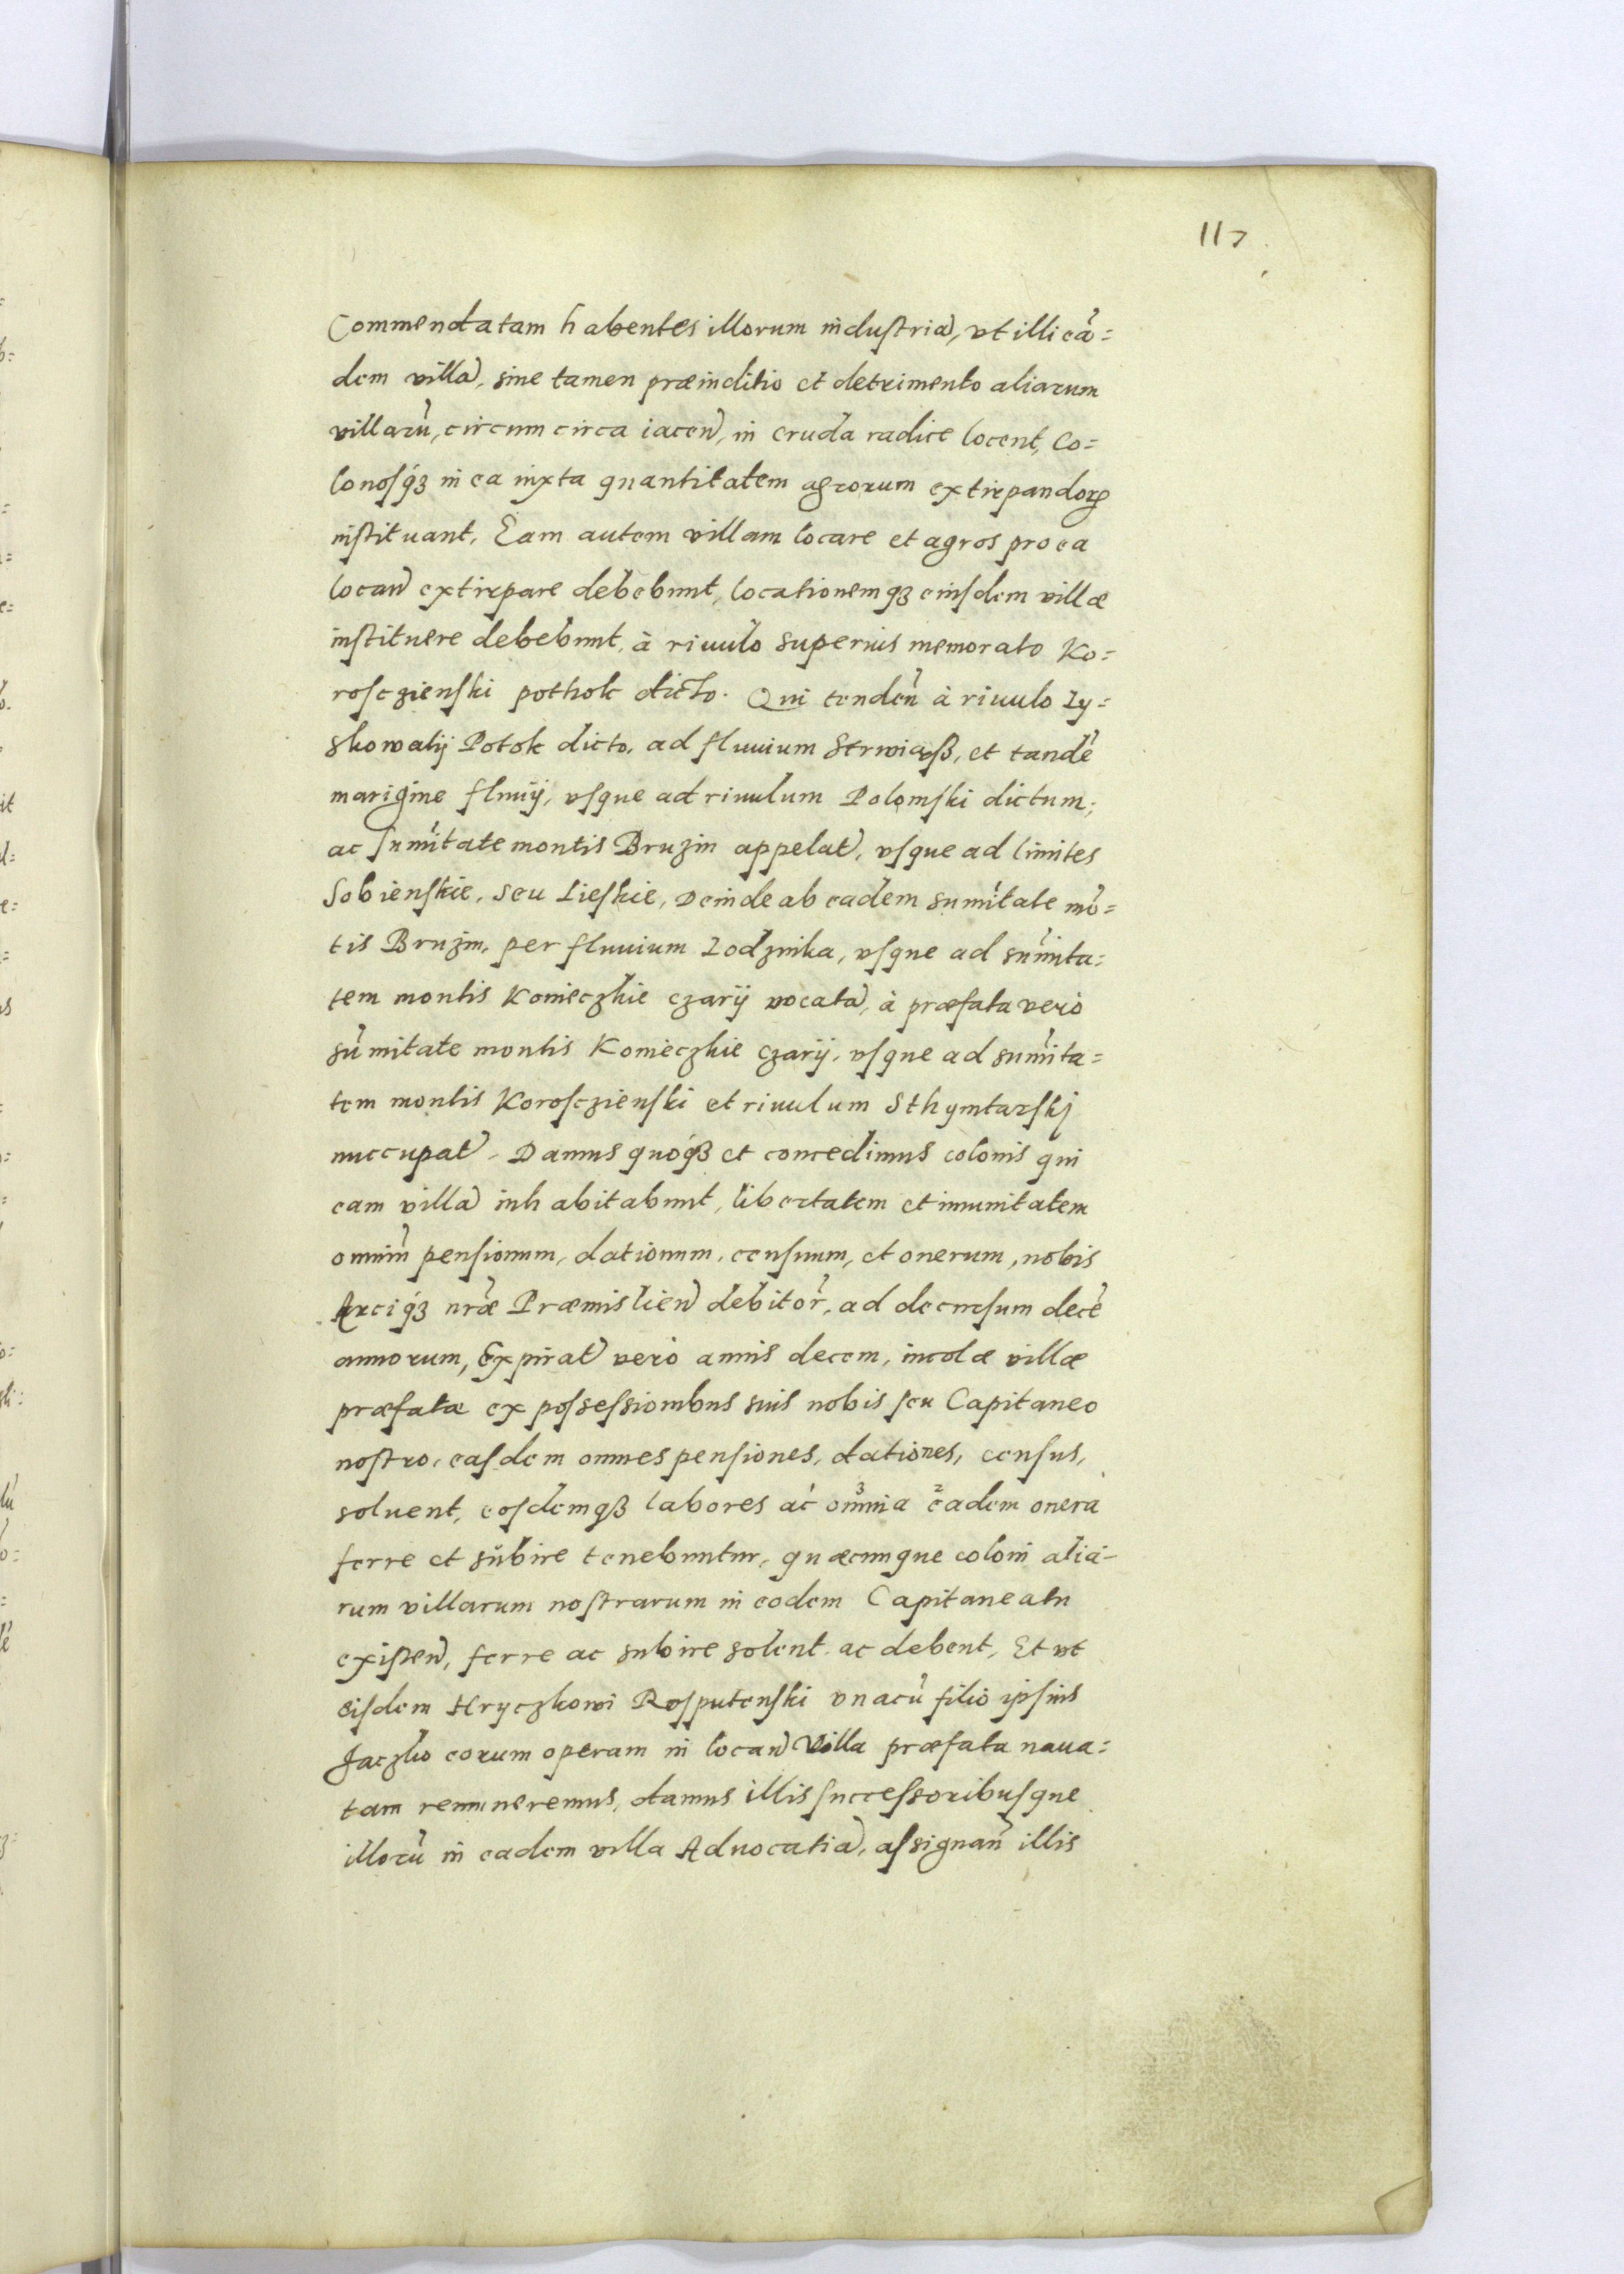 117
Commendatam habentes illorum industriã, vt illi eã=
dem villã, sine tamen præiuditio et detrimento aliarum
villarũ, circum circa iaceñ, in cruda radice locent, Co=
lonosq́ꝫ in ea iuxta quantitatem agrorum extirpandoꝝ
instituant, Eam autem villam locare et agros pro ea
locañ extirpare debebunt, locationemqꝫ eiusdem villæ
instituere debebunt, à riuulo superius memorato Ko=
rosczienski pothok dicto. Qui tendeñ à riuulo Ly=
skowatij Potok dicto, ad fluuium Strwiąß, et tandẽ
marigine fluuij, vsque ad riuulum Polomski dictum,
ac sum̃itate montis Bruzin appelat̃, vsque ad limites
Sobienskie, seu Lieskie, Deinde ab eadem sum̃itate mõ=
tis Bruzin, per fluuium Lodzinka, vsque ad sum̃ita=
tem montis Konieczkie czarij vocatã, à præfata vero
sũmitate montis Konieczkie czarij, vsque ad sum̃ita=
tem montis Korosczienski et riuulum Sthymtarskj
nuccupat̃. Damus quoq́ꝫ et concedimus colonis qui
eam villã inhabitabunt, libertatem et imunitatem
omniũ pensionum, dationum, censuum, et onerum, nobis
Arciq́ꝫ nr̃æ Præmislieñ debitor̃, ad decursum decẽ
annorum, Expirat̃ vero annis decem, incolæ villæ
præfatæ ex possessionibus suis nobis seu Capitaneo
nostro, easdem omnes pensiones, dationes, census,
soluent, eosdemqꝫ labores ac omnia eadem onera
ferre et subire tenebuntur, quæcunque coloni alia-
rum villarum nostrarum in eodem Capitaneatu
existeñ, ferre ac subire solent ac debent, Et vt
eisdem Hryczkowi Rosputenski vnacũ filio ipsius
Jaczko eorum operam in locañ villa præfata naua=
tam remuneremus, damus illis successoribusque
illorũ in eadem villa Aduocatiã, assignañ illis